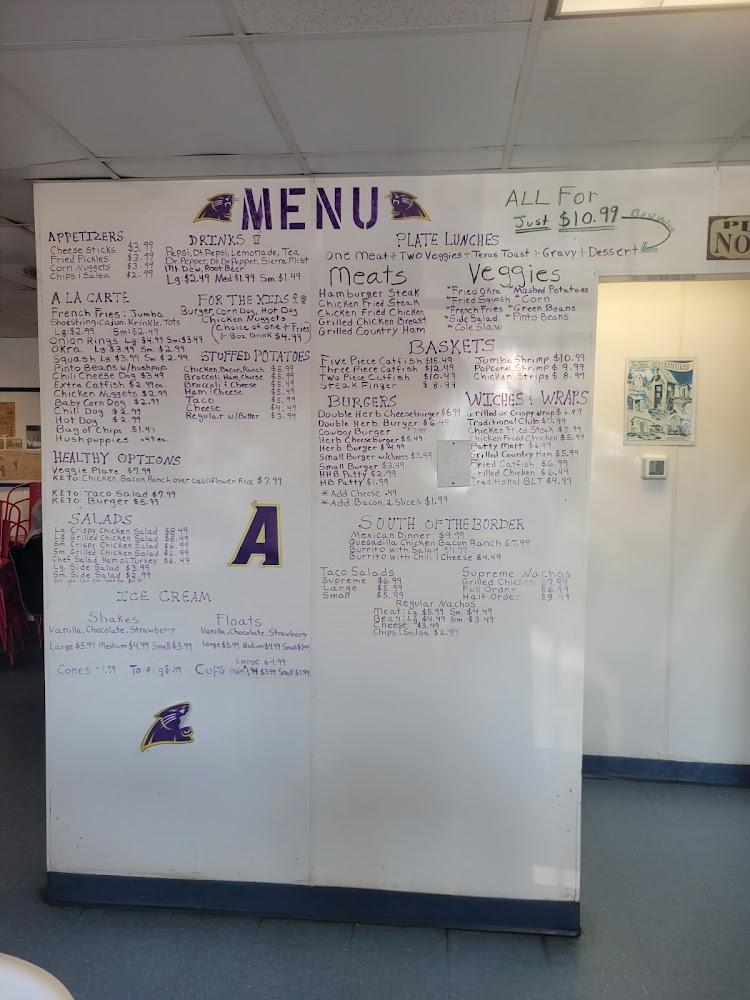 MENU
ALL For
Just $10.99
PLATE LUNCHES
One meat + Two Veggies + Texas Toast + Gravy + Dessert
Meats
Hamburger Steak
Chicken Fried Steak
Chicken Fried Chicken
Grilled Chicken Breast
Grilled Country Ham
Veggies
*Fried Okra *Mashed Potatoes
*Fried Squash *Corn
*French Fries *Green Beans
*Side Salad *Pinto Beans
*Cole Slaw
APPETIZERS
Cheese Sticks $3.99
Fried Pickles $3.99
Corn Nuggets $3.99
Chips & Salsa $2.99
DRINKS
Pepsi, Dt. Pepsi, Lemonade, Tea
Dr. Pepper, Dt. Dr. Pepper, Sierra Mist
Mt Dew, Root Beer
Lg: $2.49 Med $1.99 Sm. $1.49
A LA CARTE
French Fries: Jumbo,
Shoestring, Cajun, Krinkle, Tots
Lg: $2.95 Sm: $2.49
Onion Rings Lg: $4.99 Sm $3.49
Okra Lg $3.99 Sm. $2.99
Squash Lg $3.99 Sm $2.99
Pinto Beans w/hushpup.
Chili Cheese Dog $3.49
Extra Catfish $2.99 ea.
Chicken Nuggets $2.99
Baby Corn Dog $2.99
Chili Dog $2.99
Hot Dog $2.99
Bag of Chips $1.47
Hushpuppies .49 ea.
FOR THE KIDS
Burger, Corn Dog, Hot Dog
Chicken Nuggets
(Choice of one + Fries
+ 8oz Drink $4.99)
STUFFED POTATOES
Chicken, Bacon, Ranch $5.99
Broccoli, Ham, Cheese $5.99
Broccoli & Cheese $5.49
Ham & Cheese $5.49
Taco $5.99
Cheese $4.49
Regular w/Butter $3.99
HEALTHY OPTIONS
Veggie Plate $7.99
KETO: Chicken, Bacon, Ranch over Cauliflower Rice $7.99
KETO: Taco Salad $7.99
KETO: Burger $5.99
SALADS
Lg Crispy Chicken Salad $8.49
Lg Grilled Chicken Salad $8.49
Sm Crispy Chicken Salad $6.99
Sm. Grilled Chicken Salad $6.99
Chef Salad Ham or Turkey $6.49
Lg. Side Salad $3.99
Sm. Side Salad $2.99
A
ICE CREAM
Shakes
Vanilla, Chocolate, Strawberry
Large $5.99 Medium $4.99 Small $3.99
Floats
Vanilla, Chocolate, Strawberry
Large $5.99 Medium $4.99 Small $3.99
Cones
Cups Large $4.99 $3.99 Small $2.99
BASKETS
Five Piece Catfish $15.49
Three Piece Catfish $12.49
Two Piece Catfish $10.49
Steak Finger $8.99
Jumbo Shrimp $10.99
Popcorn Shrimp $9.99
Chicken Strips $8.99
BURGERS
Double Herb Cheeseburger $6.99
Double Herb Burger $6.49
Cowboy Burger
Herb Cheeseburger $5.49
Herb Burger $4.99
Small Burger w/cheese $3.99
Small Burger $3.49
HHB Patty $2.99
HB Patty $1.99
*Add Cheese .49
*Add Bacon, 2 Slices $1.99
WICHES & WRAPS
Grilled or Crispy Wrap $6.99
Traditional Club $7.99
Chicken Fried Steak $7.99
Chicken Fried Chicken $5.99
Patty Melt $6.49
Grilled Country Ham $5.99
Fried Catfish $6.99
Grilled Chicken $6.49
Traditional BLT $4.99
SOUTH OF THE BORDER
Mexican Dinner $9.99
Quesadilla Chicken Bacon Ranch $7.99
Burrito with Salad
Burrito with Chili & Cheese $4.49
Taco Salads
Supreme $6.99
Large $5.99
Small $5.99
Supreme Nachos
Grilled Chicken $7.99
Full Order $6.99
Half Order $5.49
Regular Nachos
Meat: Lg. $5.99 Sm. $4.49
Bean: Lg. $4.49 Sm. $3.49
Cheese: $3.49
Chips & Salsa $2.99
NO